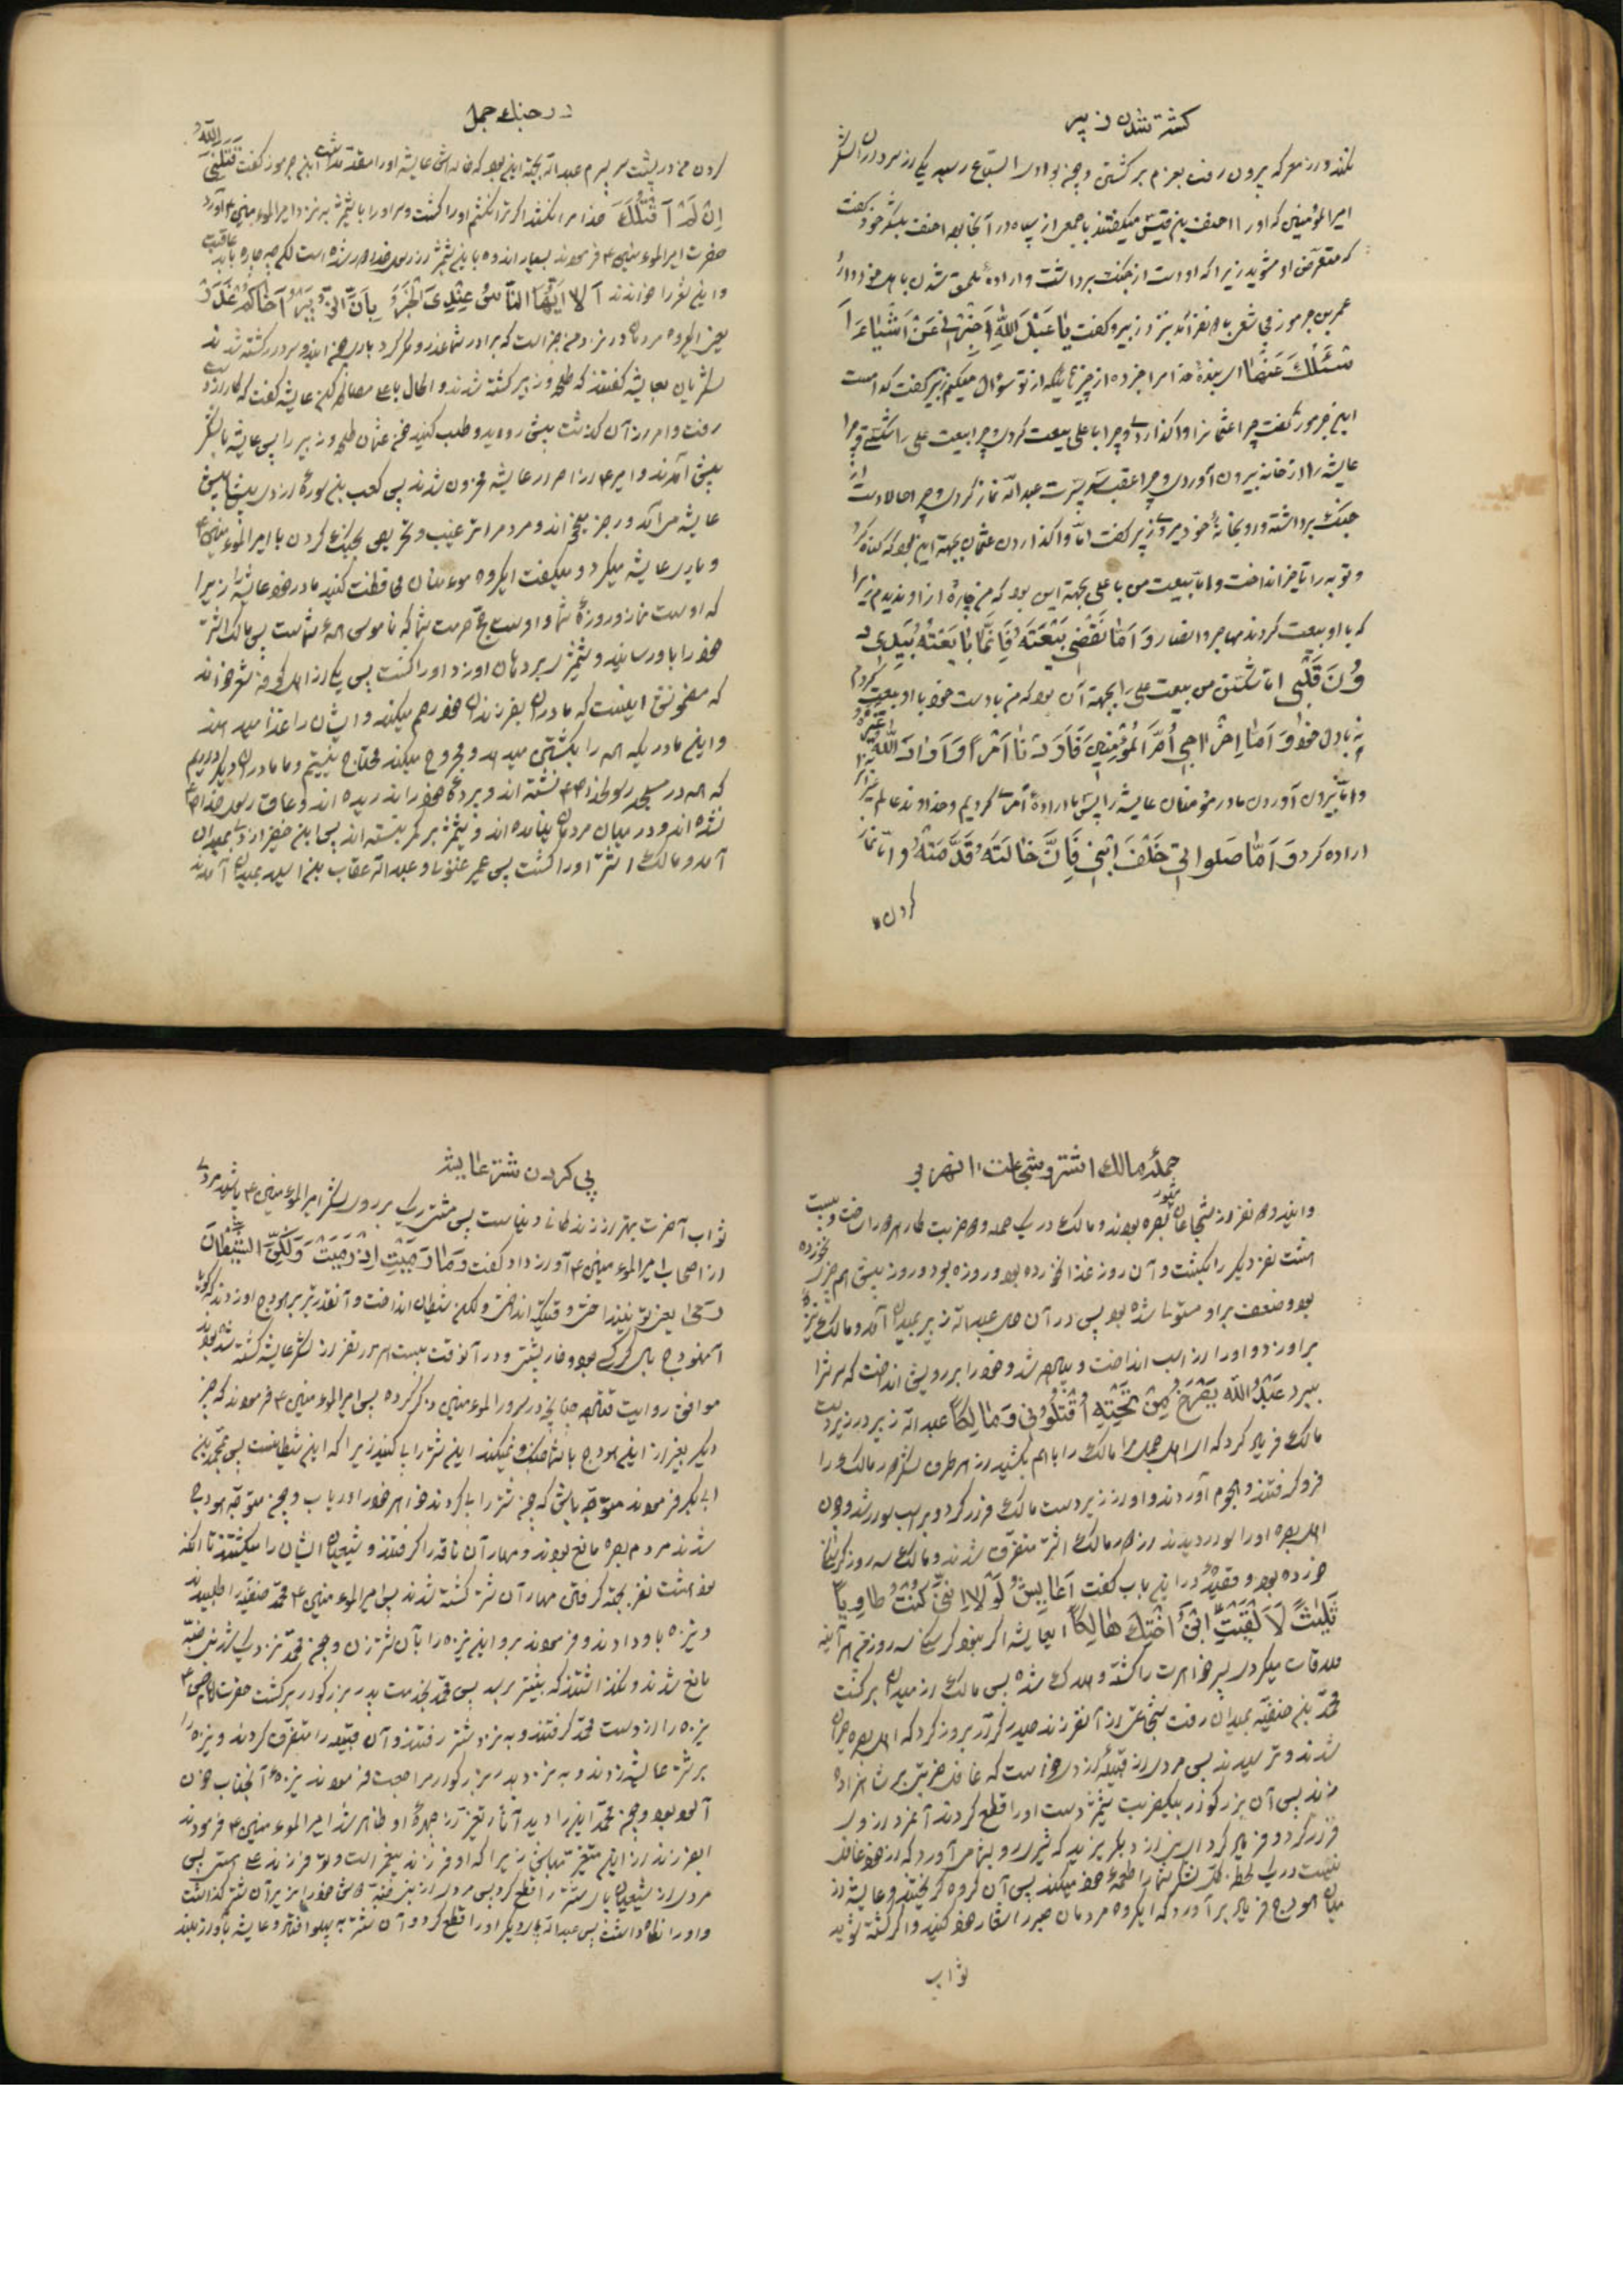 کشته شدن زبیر
نکند و از معرکه بیرون رفت بعزم برگشتن و چون بوادی السباع رسید یکی از سرداران لشکر
امیرالمؤمنین که او را احنف بن قیس میگفتند با جمعی از سپاه در آنجا بود احنف بلشکر خود گفت
که متعرض او مشوید زیرا که او دست از جنگ برداشت و اراده ملحق شدن باهل خود دارد
عمر بن جرموز با نفر آمد بنزد زبیر و گفت یا عَبْدَ اللهِ اَخْبِرْنِی عَنْ اَشْیَاءَ
اَسْئَلُکَ عَنْهَا ای بنده خدا مرا خبر ده از چیزهائیکه از تو سؤال میکنم زبیر گفت کدامست
ابن جرموز گفت چرا عثمانرا واگذاردی و چرا با علی بیعت کردی و چرا بیعت علی را شکستی و چرا
عایشه را از خانه بیرون آوردی و چرا عقب سر پسرت عبدالله نماز کردی و چرا حالا دست از
جنگ برداشته و رو بخانه خود میروی زبیر گفت اما واگذاردن عثمان بجهة این بود که گناه کرد
و توبه را بتاخیر انداخت و اما بیعت من با علی بجهة این بود که من چاره از او ندیدم زیرا
که با او بیعت کردند مهاجر و انصار وَ اَمّا نَقْضِی بَیْعَتَهُ فَاِنَّمَا بَایَعْتُهُ بِیَدِی
دُونَ قَلْبِی اما شکستن من بیعت علی را بجهة آن بود که من با دست خود با او بیعت کردم
نه با دل خود وَ اَمّا اِخْرَاجِی اُمَّ الْمُؤْمِنِینَ فَاَرَدْنَا اَمْراً وَ اَرَادَ اللهُ غَیْرَهُ
و اما بیرون آوردن مادر مؤمنان عایشه را پس ما اراده امری کردیم و خداوند عالم غیر آنرا
اراده کرد وَ اَمّا صَلَواتِی خَلْفَ ابْنِی فَاِنَّ خَالَتَهُ قَدَّمَتْهُ و اما نماز
کردن
در جنگ جمل
کردن من در پشت سر پسرم عبدالله بجهة این بود که خاله اش عایشه او را مقدم داشت ابن جرموز گفت قَتَلَنِیَ اللهُ
اِنْ لَمْ اَقْتُلْکَ خدا مرا بکشد اگر ترا نکشم او را کشت و سر او را با شمشیر به نزد امیرالمؤمنین ع آورد
حضرت امیرالمؤمنین ع فرمودند بسیار اندوه باین شمشیر از رسول خدا دور شده است لکن چه چاره باید عاقبت
و این شعر را خواندند اَلا اَیُّهَا النّاسُ عِنْدِیَ الْخَبَرُ بِاَنَّ الزُّبَیْرَ اَخَاکُمْ غَدَرَ
یعنی ایگروه مردمان در نزد من خبر است که برادر شما غدر و مکر کرد باری چون این دو سردار کشته شدند
لشکریان بعایشه گفتند که طلحه و زبیر کشته شدند و الحال با علی مصالحه کن عایشه گفت که کار از دست
رفت و امر از آن گذشت پیش روید و طلب کنید خون عثمان طلحه و زبیر را پس عایشه با لشکر
پیش آمدند
عایشه میآمد و رجز میخواند و مردم را ترغیب و تحریص بجنگ کردن با امیرالمؤمنین ع
و یاری عایشه میکرد و میگفت ایگروه مؤمنان محافظت کنید مادر خود عایشه را زیرا
که اوست نماز و روزه شما و اوست حج و حرمت شما که ناموس همه شماست پس مالک اشتر
خود را باو رسانید و شمشیر بر دهان او زد و او را کشت پس یکی از اهل کوفه شعر خواند
که مضمونش اینست که مادران بفرزندان خود رحم میکنند و ایشان را غذا میدهند
و این مادر یکه همه را بکشتن میدهد و مجروح میکند محتاج نیستیم و ما مادران دیگر داریم
که همه در مسجد رسول خدا ص نشسته اند و پرده خود را ندریده اند و عاق رسول خدا ص
نشده اند و در میان مردمان نیامده اند و شمشیر بر کمر نبسته اند پس
آمد و مالک اشتر او را کشت پس عمیر غنوی و عبدالله عتاب بن اسید بمیدان آمدند
حملهٔ مالک اشتر و شجاعت انسرور
و این دو نفر از شجاعان مشهور بصره بودند و مالک در یک حمله و دو ضربت کار هر دو را ساخت و بیست
هشت نفر دیگر را بکشت و آن روز غذا نخورده بود و روزه بود و روز پیش هم چیزی نخورده
بود و ضعف بر او مستولی شده بود پس در آن حال عبدالله زبیر بمیدان آمد و مالک نیزه
بر او زد و او را از اسب انداخت و پیاده شد و خود را بر رویش انداخت که سرش را
ببرد عَبْدُ اللهِ یَصْرَخُ مِنْ تَحْتِهِ اُقْتُلُونِی وَ مَالِکاً عبدالله زبیر در زیر دست
مالک فریاد کرد که ای اهل جمل مرا و مالک را با هم بکشید از هر طرف لشکر دور مالک را
فرو گرفتند و هجوم آوردند و او از زیر دست مالک فرار کرد و بر اسب سوار شد و چون
اهل بصره او را سوار دیدند از دور مالک اشتر متفرق شدند و مالک سه روز گرسنگی
خورده بود و قصیده در این باب گفت اَعَایِشُ لَوْلا اِنَّنِی کُنْتُ طَاوِیاً
ثَلاثاً لاَلْقَیْتِ ابْنَ اُخْتِکِ هَالِکاً ایعایشه اگر نبود گرسنگی سه روزه من هرآینه
ملاقات میکردی پسر خواهرت را کشته و هلاک شده پس مالک از میدان برگشت
محمد بن حنفیه بمیدان رفت شجاعتی از آنفرزند حیدر کرار بروز کرد که اهل بصره حیران
شدند و ترسیدند پس مردی از قبیله ازد خواست که غافل ضربتی بر شاهزاده
زند پس آن بزرگوار بیک ضربت شمشیر دست او را قطع کردند آنمرد ازدی
فرار کرد و فریاد کرد ای ازد بگریزید که شیری رو بشما میآورد که از خود غافل
نیست در یک لحظه کل لشکر شما را طعمه خود میکند پس آن گروه گریختند و عایشه از
میان هودج فریاد برآورد که ایگروه مردمان صبر را شعار خود کنید و اگر کشته شوید
ثواب
پی کردن شتر عایشه
ثواب آخرت بهتر از زندگانی دنیاست پس مشتی ریگ بر روی لشکر امیرالمؤمنین ع پاشید مردی
از اصحاب امیرالمؤمنین ع آواز داد و گفت وَ مَا رَمَیْتِ اِذْ رَمَیْتِ وَلٰکِنَّ الشَّیْطَانَ
رَمَیٰ یعنی تو نینداختی وقتیکه انداختی ولکن شیطان انداخت و آنقدر تیر بر هودج او زدند که گویا
آنهودج بال کرکس بود و خار پشت و در آنوقت بیست هزار نفر از لشکر عایشه کشته شده بودند
موافق روایت ثقات چنانچه در سرور المؤمنین ذکر کرده پس امیرالمؤمنین ع فرمودند که چیز
دیگر بغیر از این هودج با شما جنگ نمیکند این شتر را پی کنید زیرا که این شیطانست پس بمحمد بن
ابی بکر فرمودند متوجه باش که چون شتر را پی کردند خواهر خود را دریاب و چون متوجه هودج
شدند مردم بصره مانع بودند و مهار آن ناقه را گرفتند و شیعیان ایشان را میکشتند تا آنکه
نود هشت نفر بجهة گرفتن مهار آن شتر کشته شدند پس امیرالمؤمنین ع محمد حنفیه را طلبیدند
و نیزه باو دادند و فرمودند برو این نیزه را بآن شتر زن و چون محمد نزدیک شد بنی ضبه
مانع شدند و نگذاشتند که پیشتر برود پس محمد بخدمت پدر بزرگوار برگشت حضرت امام حسن ع
نیزه را از دست محمد گرفتند و به نزد شتر رفتند و آن قبیله را متفرق کردند و نیزه را
بر شتر عایشه زدند و به نزد پدر بزرگوار مراجعت فرمودند نیزه آنجناب خون
آلود بود و چون محمد این را دید آثار تغییر از چهره او ظاهر شد امیرالمؤمنین ع فرمودند
ایفرزند از این متغیر مباش زیرا که او فرزند پیغمبر است و تو فرزند علی هستی پس
مردی از شیعیان پای شتر را قطع کرد پس مردی از بنی ضبه دوش خود را زیر آن شتر گذاشت
و او را نگاه داشت پس عبدالله پای دیگر او را قطع کرد و آن شتر به پهلو افتاد و عایشه بآواز بلند